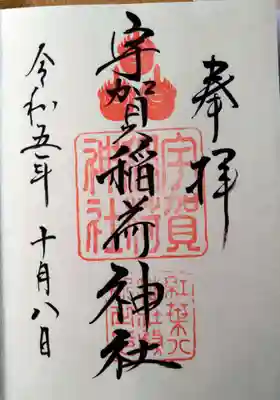 奉拝
宇賀稲荷神社
令和五年 十月八日
宇賀
稲荷
神社
紅葉八